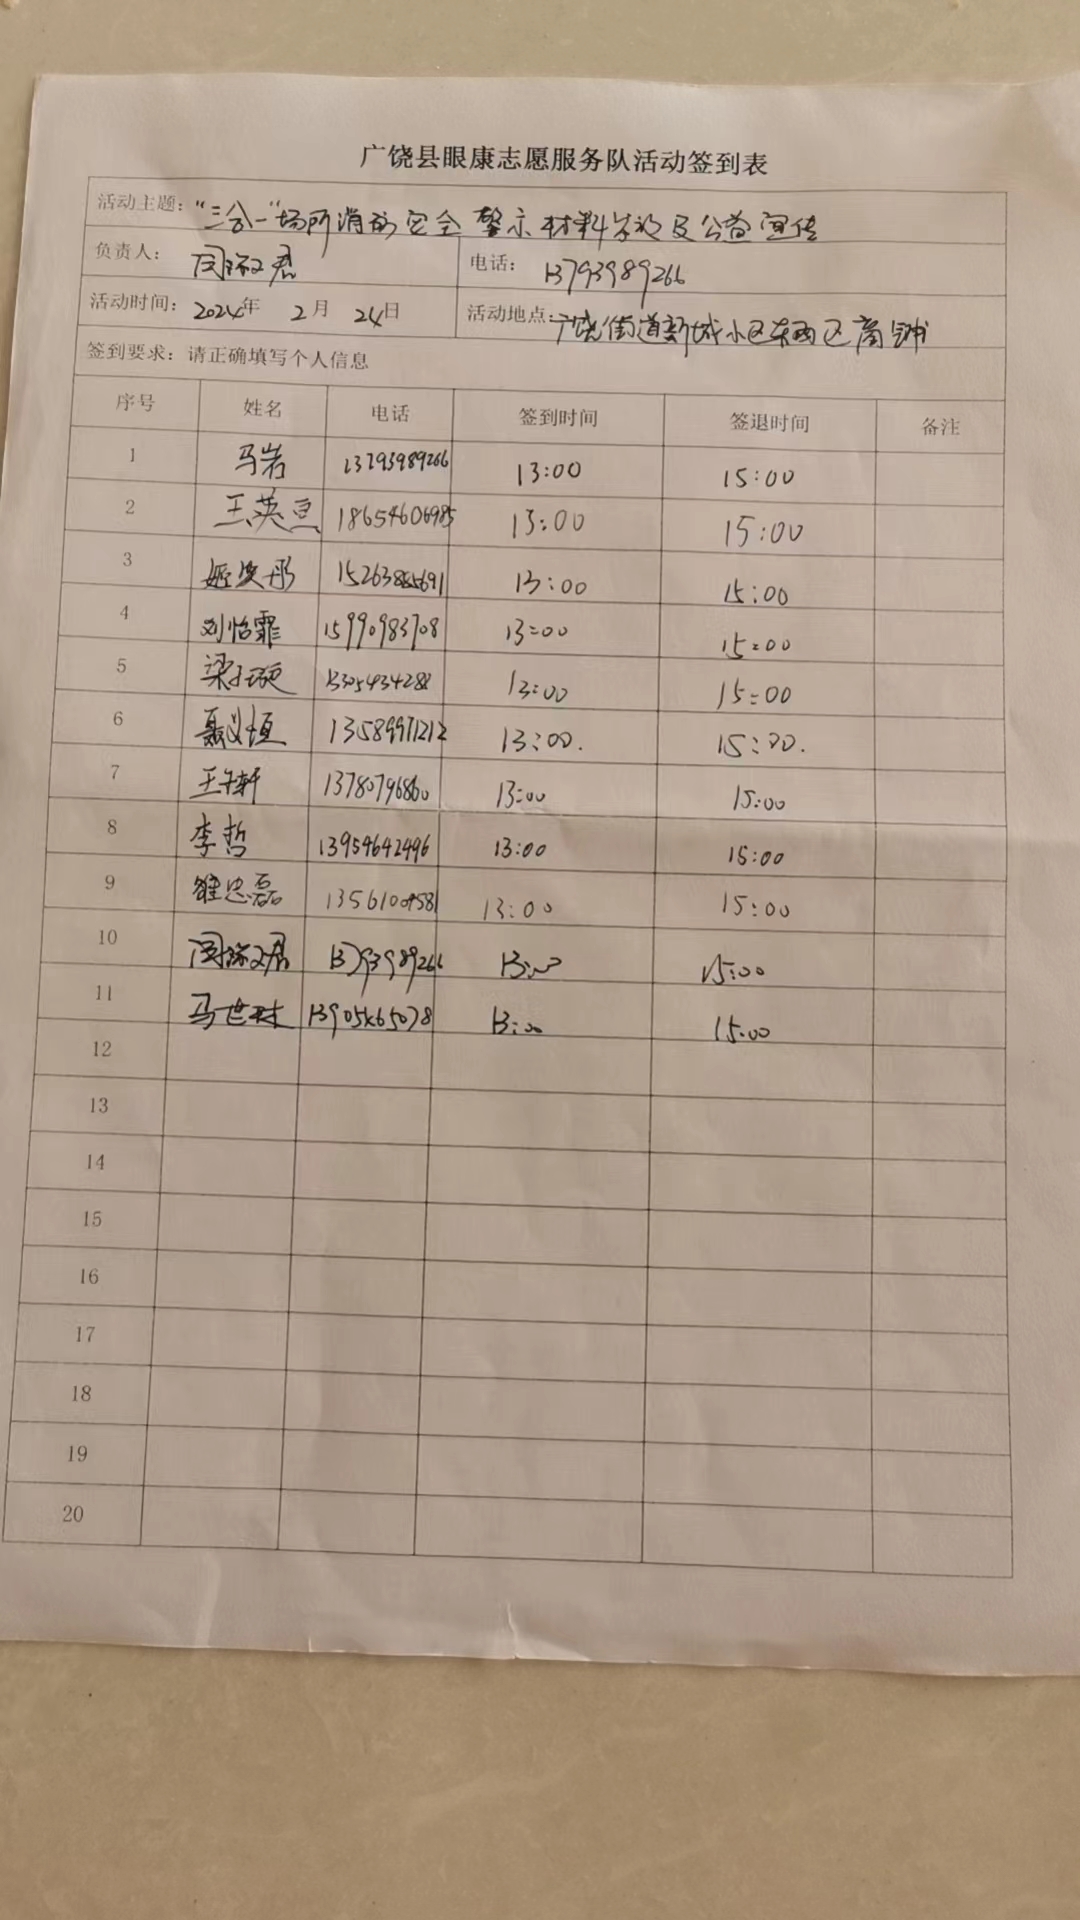 广饶县眼康志愿服务队活动签到表
活动主题：“三合一”场所消防安全警示材料发放及公益宣传
负责人： 电话：13793989266
活动时间：2024年 2月 24日 活动地点：广饶街道新城小区东西区商铺
签到要求：请正确填写个人信息
序号 姓名 电话 签到时间 签退时间 备注
1 马岩 13793989266 13:00 15:00
2 王英豆 18654606985 13:00 15:00
3 13:00 15:00
4 刘怡霏 15990983708 13:00 15:00
5 13:00 15:00
6 聂义恒 13589971212 13:00. 15:00.
7 王午轩 13780796860 13:00 15:00
8 李哲 13954642496 13:00 15:00
9 13:00 15:00
10 13793989266 13:00 15:00
11 马世林 13:00 15:00
12
13
14
15
16
17
18
19
20